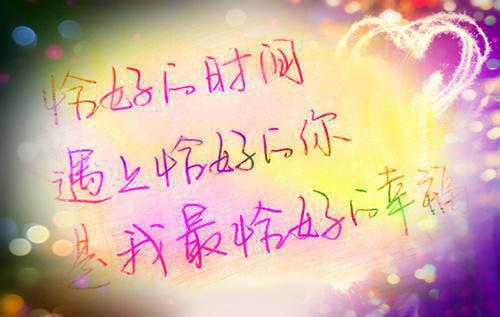 恰好的时间
遇上恰好的你
是我最恰好的幸福